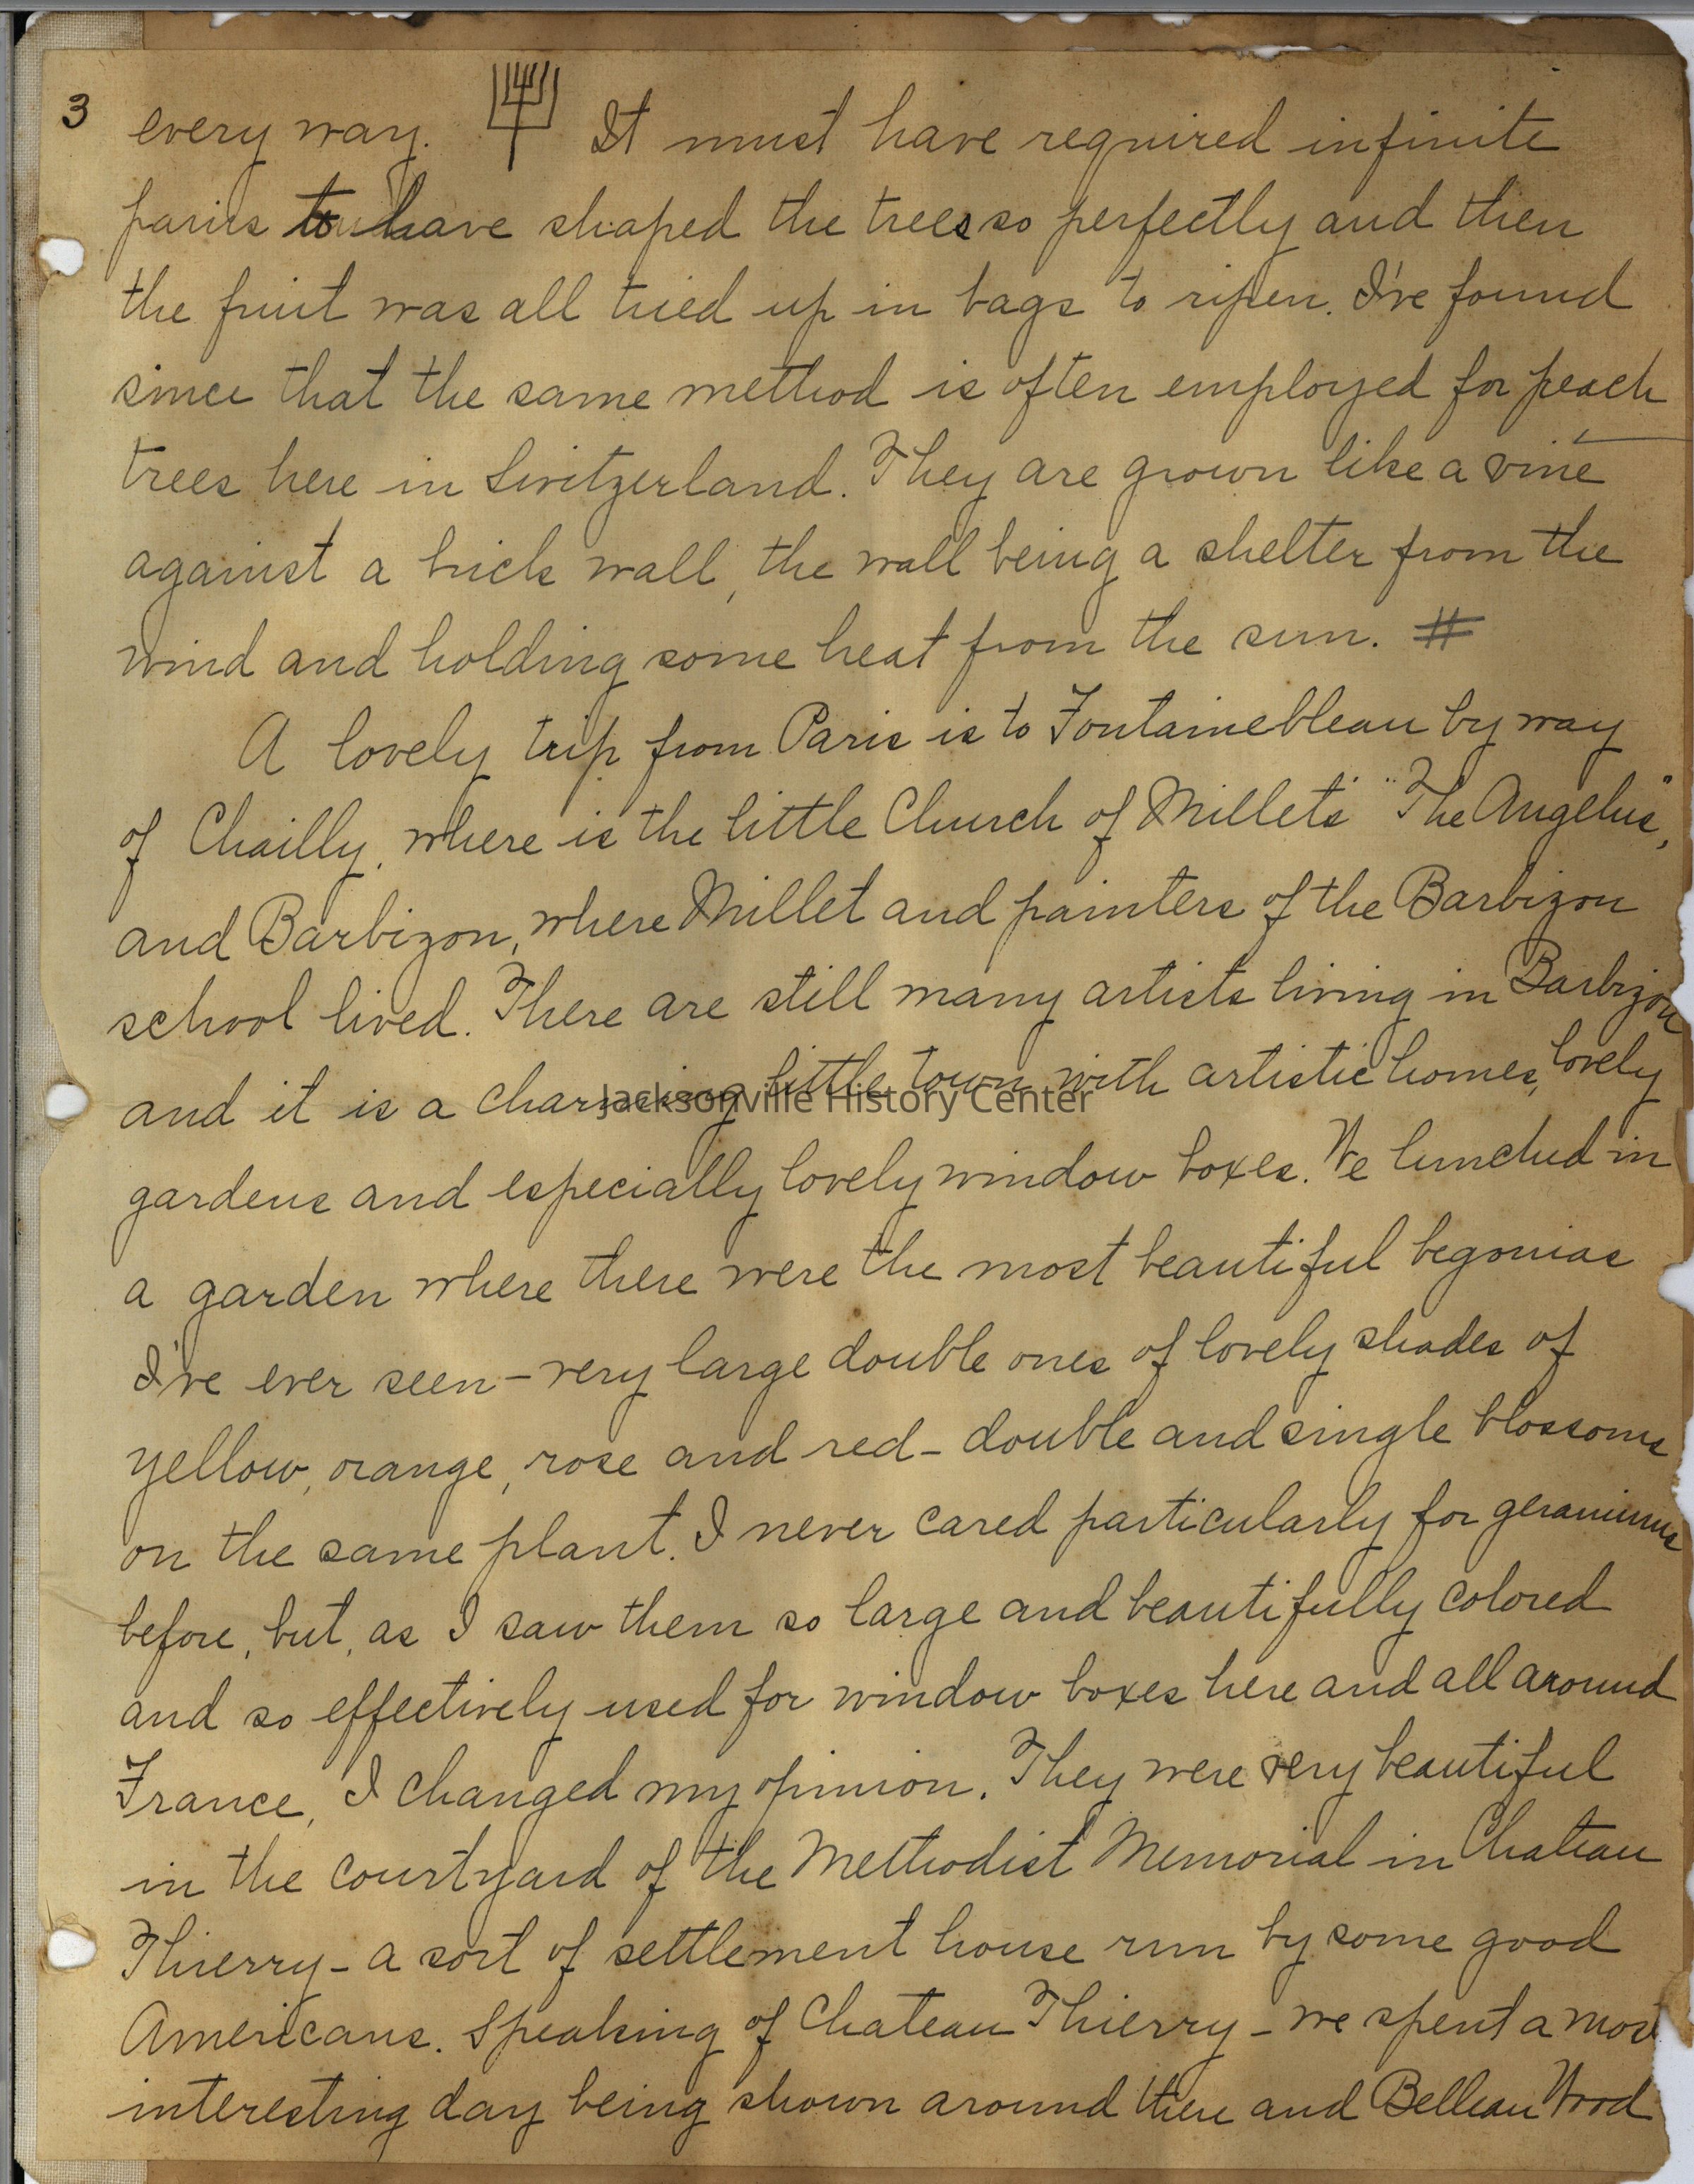 3 every way. It must have required infinite
pains to have shaped the trees so perfectly and then
the fruit was all tied up in bags to ripen. I've found
since that the same method is often employed for peach
trees here in Switzerland. They are grown like a vine
against a brick wall, the wall being a shelter from the
wind and holding some heat from the sun. #
A lovely trip from Paris is to Fontainebleau by way
of Chailly, where is the little Church of Millet's "The Angelus",
and Barbizon, where Millet and painters of the Barbizon
school lived. There are still many artists living in Barbizon
and it is a charming little town with artistic homes, lovely
Jacksonville History Center
gardens and especially lovely window boxes. We lunched in
a garden where there were the most beautiful begonias
I've ever seen - very large double ones of lovely shades of
yellow, orange, rose and red - double and single blossoms
on the same plant. I never cared particularly for geraniums
before, but, as I saw them so large and beautifully colored
and so effectively used for window boxes here and all around
France, I changed my opinion. They were very beautiful
in the courtyard of the Methodist Memorial in Chateau
Thierry - a sort of settlement house run by some good
Americans. Speaking of Chateau Thierry - we spent a most
interesting day being shown around there and Belleau Wood